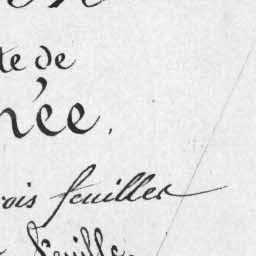 te de
née.
rois feuilles
feuille